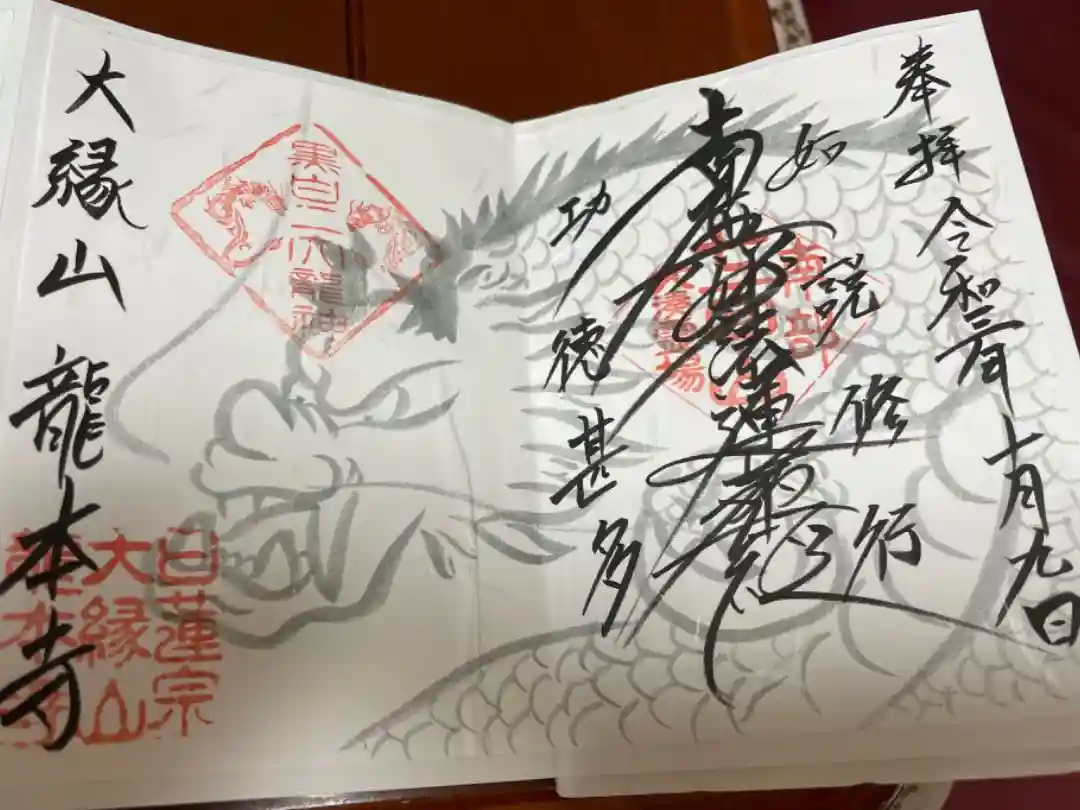 奉拝 令和三年 十月九日
如説修行
南無妙法蓮華経
功徳甚多
南部
霊場
黒白二大龍神
大縁山 龍本寺
日蓮宗
大縁山
龍本寺